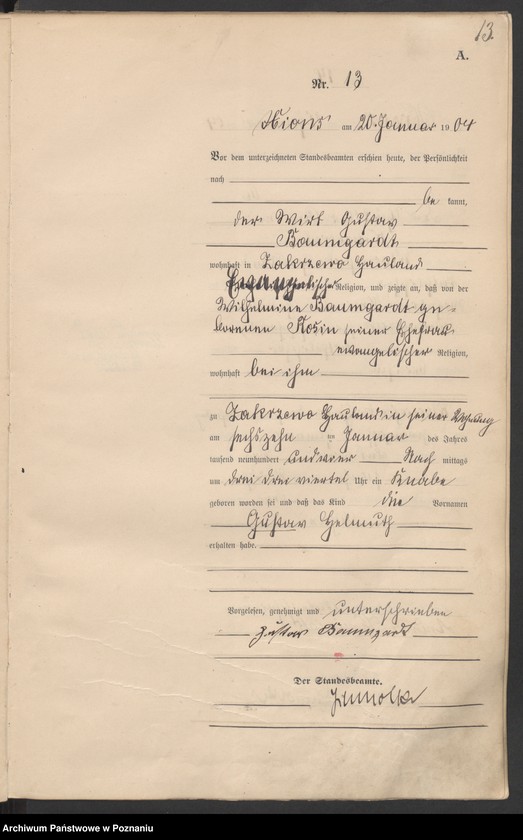 13.
A.
Nr. 13
Xions am 20. Januar 1904
Vor dem unterzeichneten Standesbeamten erschien heute, der Persönlichkeit
nach
be kannt,
der Wirt Gustav
Baumgardt
wohnhaft in Zakrzewo Hauland
Evangelischer Religion, und zeigte an, daß von der
Wilhelmine Baumgardt ge-
borenen Rosin seiner Ehefrau
evangelischer Religion,
wohnhaft bei ihm
zu Zakrzewo Hauland in seiner Wohnung
am sechszehn ten Januar des Jahres
tausend neunhundert und vier Nach mittags
um drei drei viertel Uhr ein Knabe
geboren worden sei und daß das Kind die Vornamen
Gustav Helmuth
erhalten habe.
Vorgelesen, genehmigt und unterschrieben
Gustav Baumgardt
Der Standesbeamte.
Archiwum Państwowe w Poznaniu